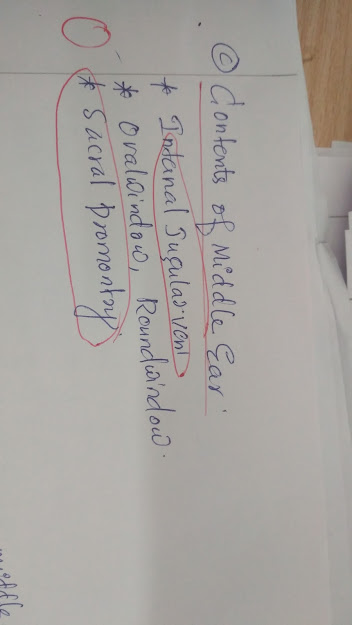 © Contents of Middle Ear.
* Internal Jugular vein
* Ovalwindow, Roundwindow.
* Sacral promontry.
O
middle